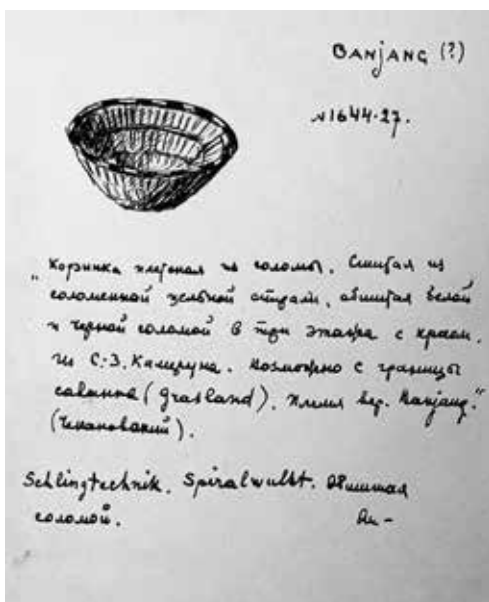 Banjang (?)
№1644-27.
„Корзинка плетеная из соломы. Сшитая из
соломенной цельной спирали, обшитая белой
и черной соломой в три этажа с краем.
Из С.-З. Камеруна. Возможно с границы
саванны (grasland). Племя вер. Banjang.“
(Чекановский).
Schlingtechnik. Spiralwulst. Обшитая
соломой.